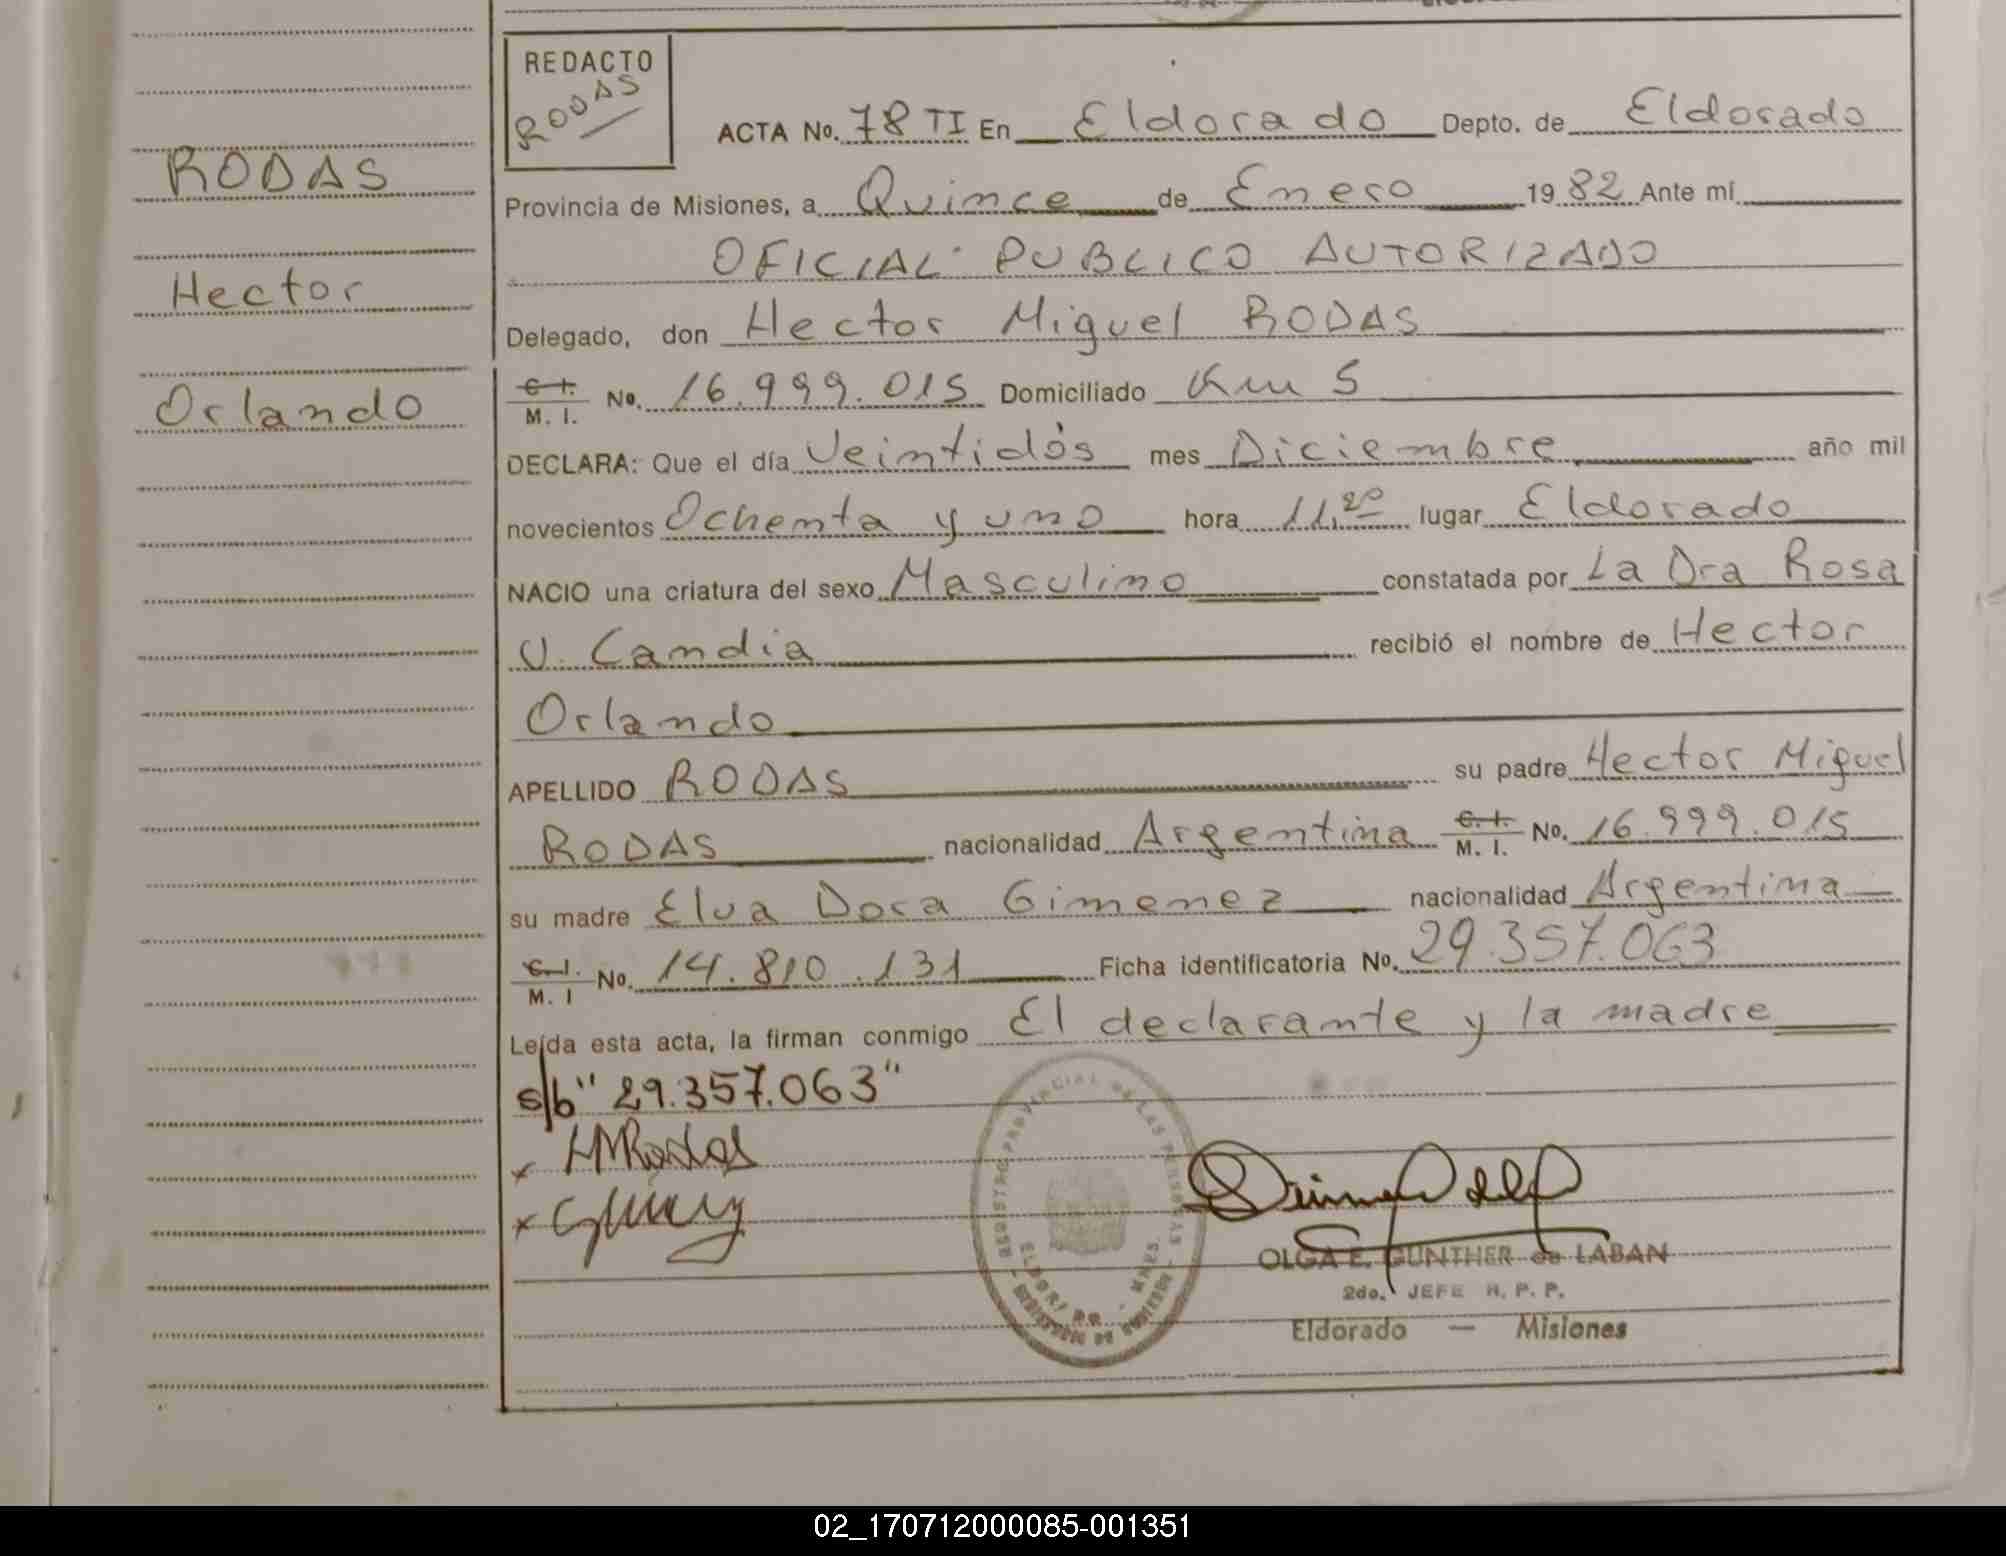 RODAS
Hector
Orlando
REDACTO
RODAS
ACTA No. 78 TI En Eldorado Depto. de Eldorado
Provincia de Misiones, a Quince de Enero 1982 Ante mí
OFICIAL PUBLICO AUTORIZADO
Delegado, don Hector Miguel RODAS
C. I. / M. I. No. 16.999.015 Domiciliado Km 5
DECLARA: Que el día Veintidós mes Diciembre año mil
novecientos Ochenta y uno hora 11,20 lugar Eldorado
NACIO una criatura del sexo Masculino constatada por La Dra Rosa
V. Candia recibió el nombre de Hector
Orlando
APELLIDO RODAS su padre Hector Miguel
RODAS nacionalidad Argentina C. I. / M. I. No. 16.999.015
su madre Elva Dora Gimenez nacionalidad Argentina
C. I. / M. I No. 14.810.131 Ficha identificatoria No. 29.357.063
Leída esta acta, la firman conmigo El declarante y la madre
s/b "29.357.063"
x HMRodas
x
REGISTRO PROVINCIAL DE LAS PERSONAS
ELDORADO - MNES.
MINISTERIO DE GOBIERNO
OLGA E. GUNTHER de LABAN
2do. JEFE R. P. P.
Eldorado — Misiones
02_170712000085-001351